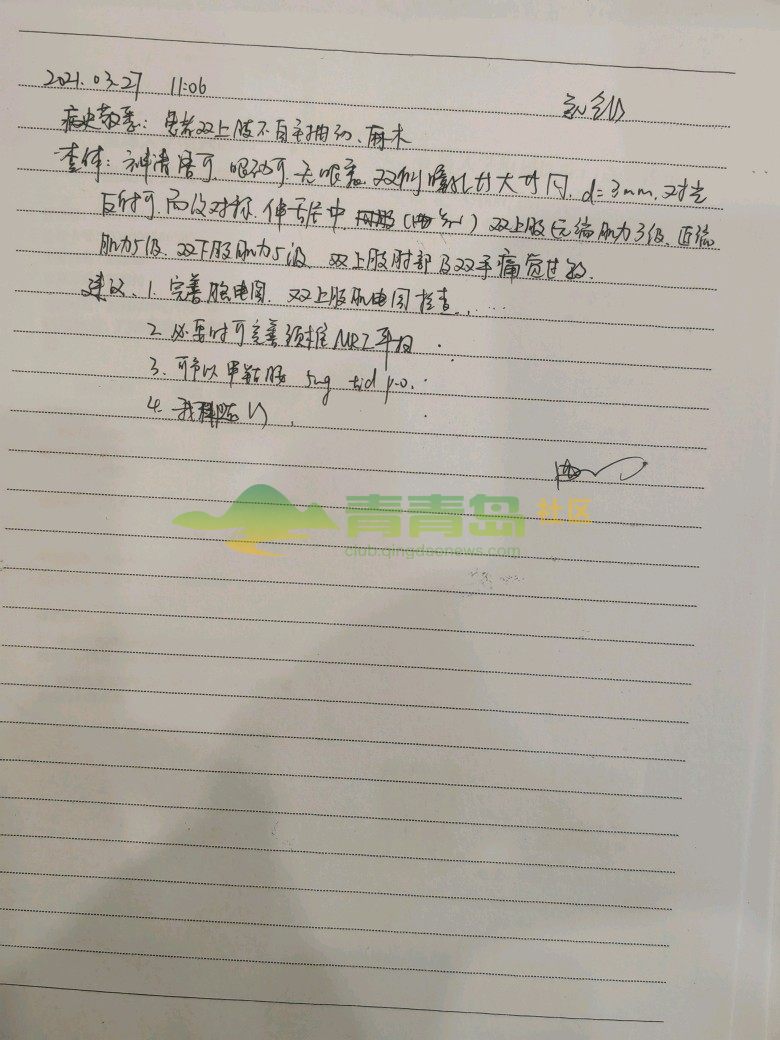 2021.03.27 11:06
病史敬悉: 患者双上肢不自主抽动、麻木
查体: 神清语可, 眼动可, 无眼震, 双侧瞳孔等大等圆, d=3mm, 对光
反射可, 面纹对称, 伸舌居中, 双上肢远端肌力3级, 近端
肌力5级, 双下肢肌力5级, 双上肢肘部及双手痛觉过敏.
建议: 1. 完善脑电图, 双上肢肌电图检查.
2. 必要时可完善颈椎MRI平扫.
3. 可予以甲钴胺 5mg tid p.o.
4. 我科随访.
青青岛 社区
club.qingdaonews.com